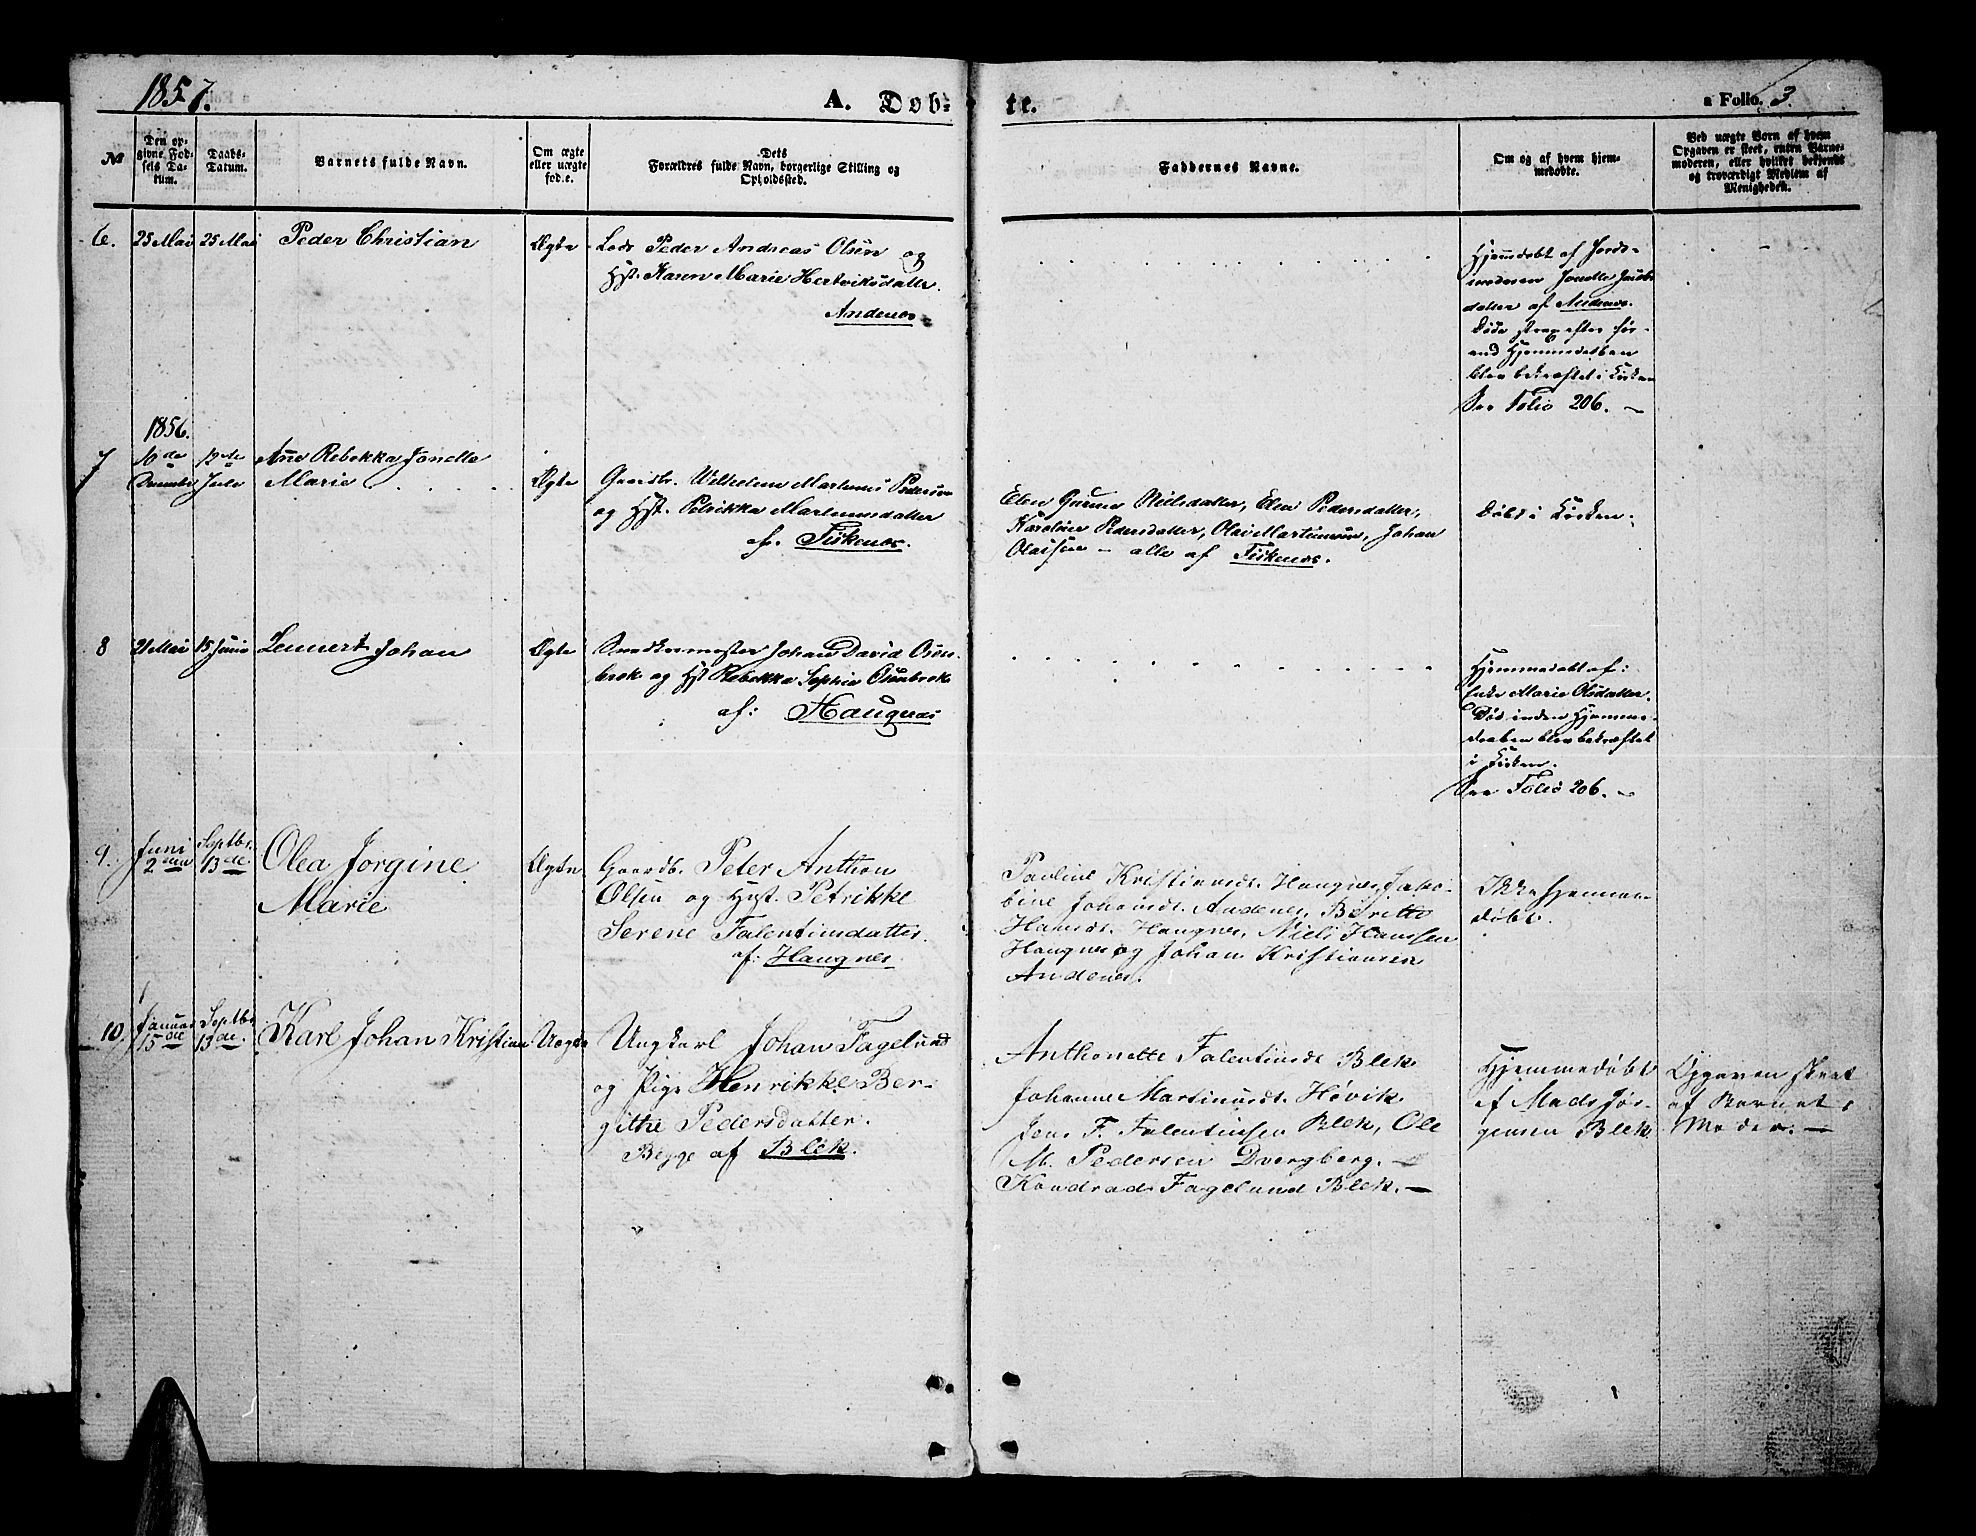 1857.
A. Døb-
te.
a Folio. 3.
№
Den op-
givne Fød-
sels Da-
tum.
Daabs-
Datum.
Barnets fulde Navn.
Om ægte
eller uægte
fød.e.
Dets
Forældres fulde Navn, borgerlige Stilling og
Opholdssted.
Faddernes Navne.
Om og af hvem hjem-
medøbte.
Ved uægte Børn af hvem
Opgaven er skeet, enten Barne-
moderen, eller hvilket bekjendt
og troværdigt Medlem af
Menigheden.
6.
25 Mai
25 Mai
Peder Christian
Ægte
Lods Peder Andreas Olsen og
Hst. Karen Marie Hertviksdatter.
Andenes
Hjemdøbt af Jords-
moderen Jonelle Jacobs
datter af Andenes.
Døde strax efter før-
end Hjemmedaaben
blev bekræftet i Kirken
See Folio 206. –
7
1856.
10de
December
12te
Julii
Ane Rebekka Jonelle
Marie
Ægte
Gaardbr. Wilhelm Martinus Pedersen
og Hst. Petrikka Martinusdatter
af. Fiskenes.
Elen Nielsdatter, Elen Pedersdatter,
Karoline Pedersdatter, Olai Martinusen, Johan
Olaisen – alle af Fiskenes.
Døbt i Kirken.
8
21 Mai
15 Junii
Lennert Johan
Ægte
Snedkermester Johan David Osen-
brok og Hst Rebekka Sophia Osenbrok
af: Haugnæs
Hjemmedøbt af:
Marie Olsdatter.
Død inden Hjemme-
daaben blev bekræftet
i Kirken.
See Folio 206. –
9.
Juni
2den
Septbr.
13de
Olea Jorgine
Marie
Ægte
Gaardb. Peter Anthon
Olsen og Hust. Petrikke
Serene Falentinsdatter.
af: Haugnes.
Pauline Kristiansdt. Haugnes, Jako-
bine Johansdt. Andenes, Beritte
Hansdt. Haugnes, Niels Hanssen
Haugnes og Johan Kristiansen
Andenes.
Ikke hjemme-
døbt.
10.
Januar
15de
Septbr
13de.
Karl Johan Kristian
Uægte
Ungkarl Johan Fagelund
og Pige Henrikke Ber-
githe Pedersdatter.
Begge af Blek.
Anthonette Falentinsdt Blek
Johanne Martinusdt. Høvik.
Jens F. Falentinsen Blek, Ole
M. Pedersen Dvergberg. –
Kondrad Fagelund Blek. –
Hjemmedøbt
af Mads Jør-
gensen Blek
Opgaven skeet
af Barnets
Moder. –